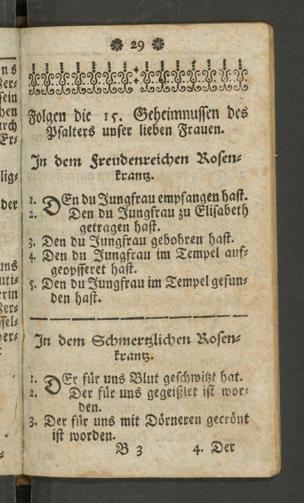 ❀ 29 ❀
Folgen die 15. Geheimnussen des
Psalters unser lieben Frauen.
In dem Freudenreichen Rosen-
krantz.
1. DEn du Jungfrau empfangen hast.
2. Den du Jungfrau zu Elisabeth
getragen hast.
3. Den du Jungfrau gebohren hast.
4. Den du Jungfrau im Tempel auf-
geopfferet hast.
5. Den du Jungfrau im Tempel gefun-
den hast.
In dem Schmertzlichen Rosen-
krantz.
1. DEr für uns Blut geschwitzt hat.
2. Der für uns gegeißlet ist wor-
den.
3. Der für uns mit Dörneren gecrönt
ist worden.
B 3 4. Der